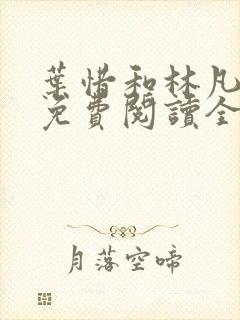 葉惜和林凡
免費閱讀全
月落空啼